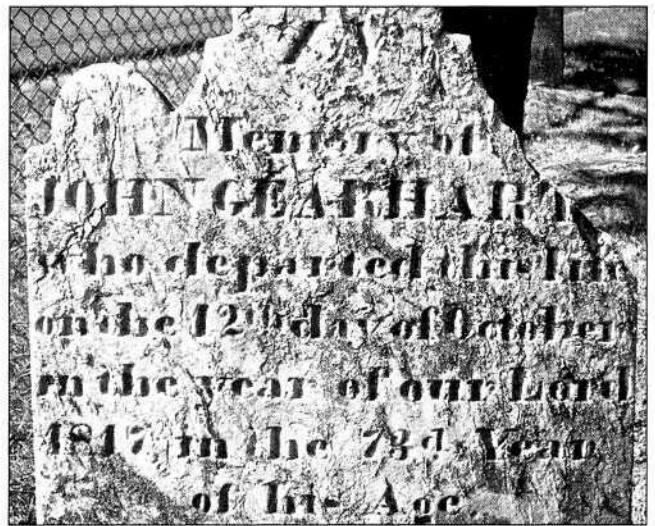 Memory of
JOHN GEARHART
who departed this life
on the 12th day of October
in the year of our Lord
1817, in the 73d Year
of his Age